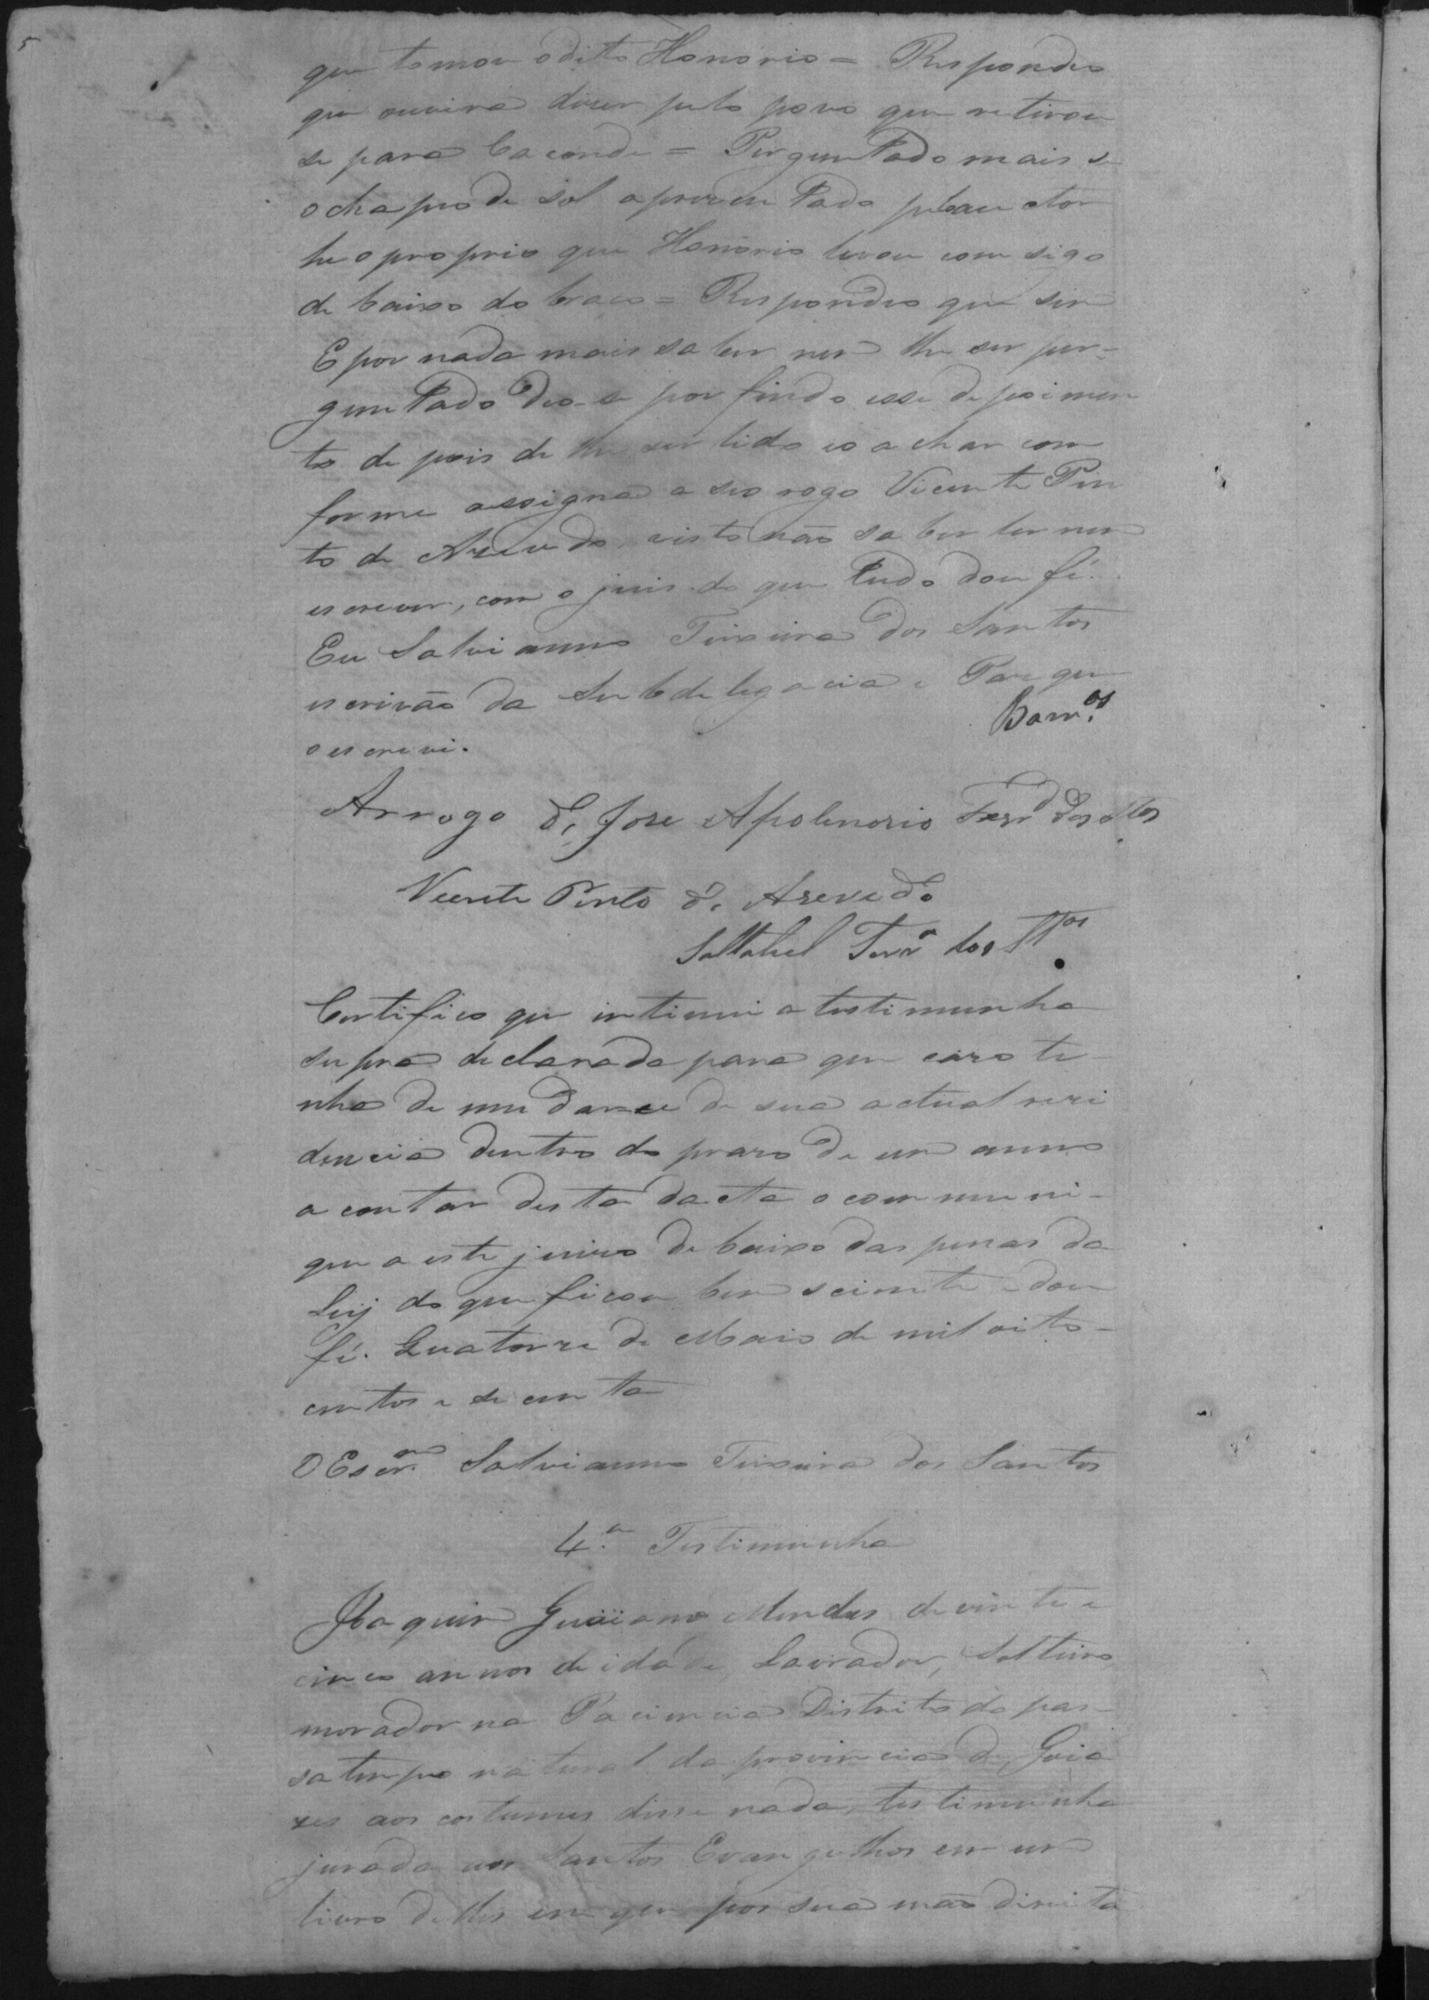 que tomou o dito Honorio = Respondeo
que ouvira diser pelo povo que retirou
se para Caconde = Perguntado mais se
o chapeo de sol aprezentado pelo auctor
he o proprio que Honorio levou com sigo
de baixo do braco = Respondeo que sim
E por nada mais saber nem lhe ser per-
guntado deo-se por findo esse depoimen
to de pois de lhe ser lido e o achar com
forme assigna a seo rogo Vicente Pin
to de Azevedo visto não saber ler nem
escrever, com o juis do que tudo dou fé.
Eu Salvianno Teixeira dos Santos
escrivão da Subdelegacia e Paz que
o escrevi.
Barr.os
Arrogo de Jose Apolenario Ferr.a dos Stos
Vicente Pinto de Azevedo
Ferr.a dos Stos
Certifico que intimei a testimunha
supra declarada para que cazo te
nha de mudance de sua actual rezi
dencia dentro do prazo de um anno
a contar desta dacta o communi-
que a este juizo de baixo das penas da
Leij do que ficou bem sciente e dou
fé. Quatorze de Maio de mil oito-
centos e secenta
O Escr.am Salvianno Teixeira dos Santos
4.a Testimunha
Joaquim Mendes de vinte e
cinco annos de idade, Lavrador, Solteiro
morador na Paciencia Distrito do pas-
satempo natural da provincia de Goia
zes aos costumes disse nada, testimunha
jurada nos Santos Evangelhos em um
livro delles em que pos sua mão direita